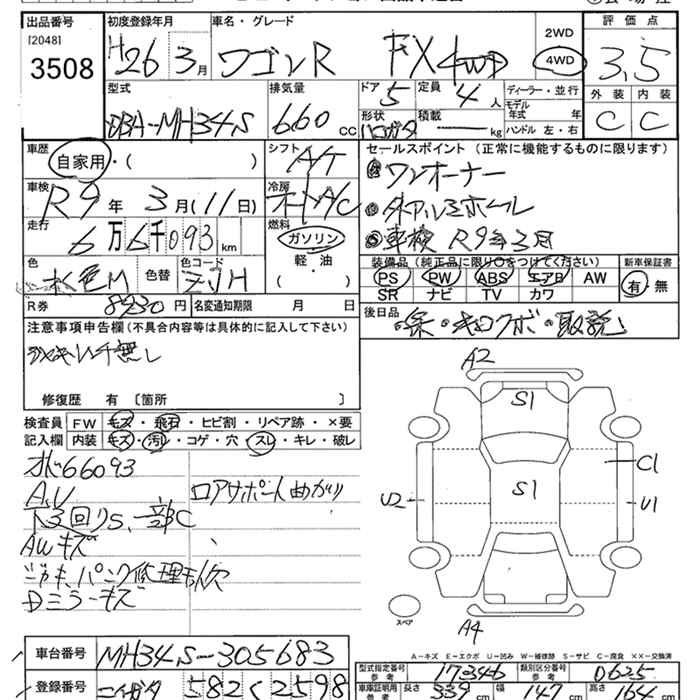 出品番号 初度登録年月 車名・グレード 2WD 評価点
[2048]
3508 H26 3月 ワゴンR FX 4WD 4WD 3.5
型式 排気量 ドア 5 定員 4人 ディーラー・並行 外装 内装
モデル年式 年
DBA-MH34S 660cc 形状 積載 kg ハンドル 左・右 C C
車歴 自家用・( ) シフト A/T セールスポイント (正常に機能するものに限ります)
ワンオーナー
車検 R9年3月(11日) 冷房 オートA/C アルミホイール
走行 6万6千093km 燃料 ガソリン 車検 R9年3月
装備品(純正品に限り○をつけてください) 新車保証書
色 水色M 色替 色コード ZJH 軽・油 ( ) PS PW ABS エアB AW 有・無
SR ナビ TV カワ
R券 8930円 名変通知期限 月 日 後日品
注意事項申告欄(不具合内容等は具体的に記入して下さい) ・キロクボ・取説
修復歴 有 〔箇所 〕
検査員記入欄 FW キズ・飛石・ヒビ割・リペア跡・×要
内装 キズ・汚レ・コゲ・穴・スレ・キレ・破レ
66093
A.U ロアサポート曲がり
下3回りS、一部C
AWキズ
ジャキ、パンク修理キ欠
Dミラーキズ
A2
S1
S1
C1
U2
U1
スペア
A4
A-キズ E-エクボ U-凹み W-補修跡 S-サビ C-腐食 XX-交換済
車台番号 MH34S-305683 型式指定番号 参考 17346 類別区分番号 参考 0625
登録番号 582 2598 車庫証明用 参考 長さ 339cm 幅 147cm 高さ